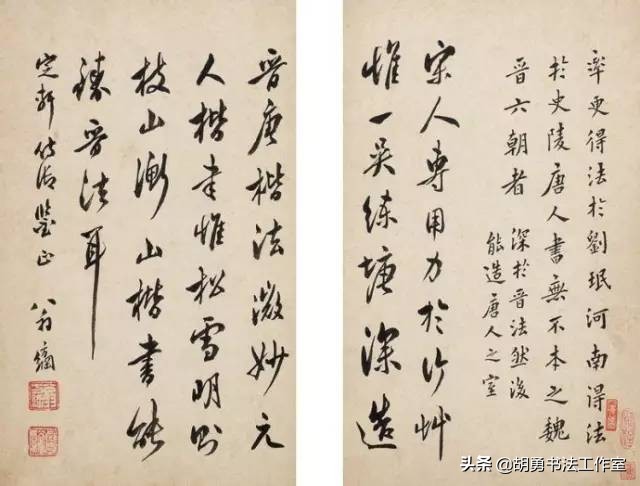 率更得法於劉珉河南得法
於史陵唐人書無不本之魏
晉六朝者深於晉法然後
能造唐人之室
宋人專用力於行艸
惟一吳練塘深造
晉唐楷法微妙元
人楷書惟松雪明則
枝山衡山楷書能
臻晉法耳
定軒鑒正
头条 @胡勇书法工作室